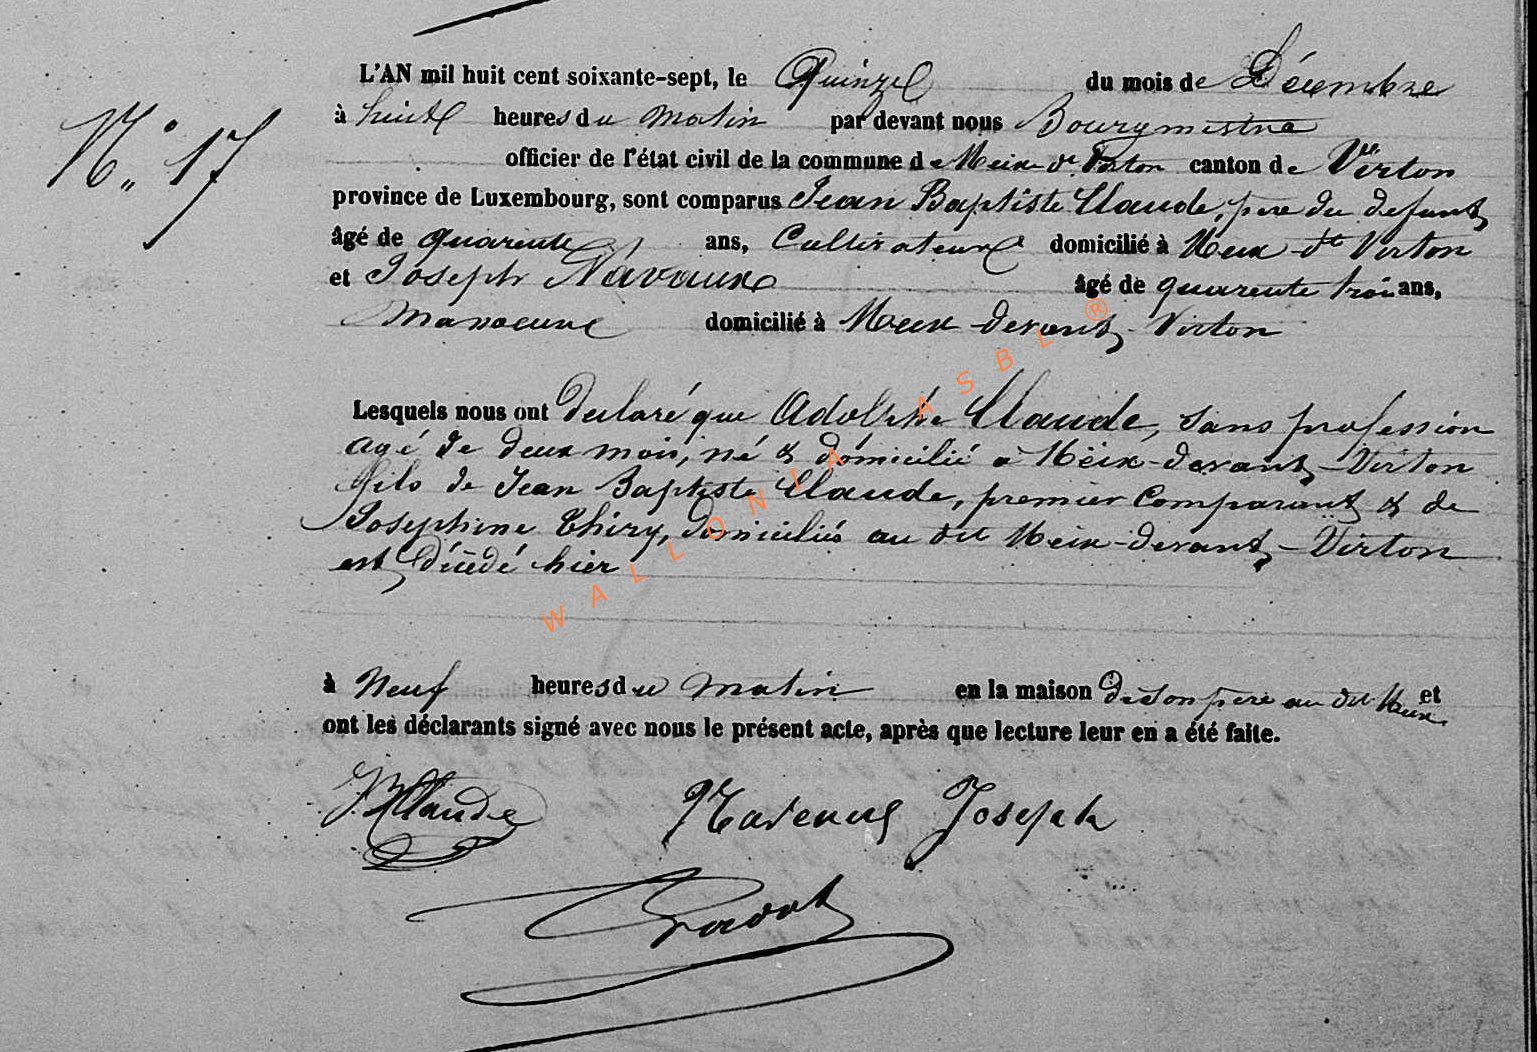 L'AN mil huit cent soixante-sept, le Quinze du mois de Décembre
N° 17
à huit heures du matin par devant nous Bourgmestre
officier de l'état civil de la commune de Meix-dt Virton canton de Virton
province de Luxembourg, sont comparus Jean Baptiste Claude, père du defunt
âgé de quarente ans, Cultivateur domicilié à Meix-dt Virton
et Joseph Navaux âgé de quarente trois ans,
Manoeuvre domicilié à Meix-devant-Virton
Lesquels nous ont declaré que Adolphe Claude, sans profession
agé de deux mois, né & domicilié à Meix-devant-Virton
fils de Jean Baptiste Claude, premier Comparant & de
Josephine Thiry, domiciliés au dit Meix-devant-Virton
est décédé hier
à Neuf heures du matin en la maison de son père au dit Meix et
ont les déclarants signé avec nous le présent acte, après que lecture leur en a été faite.
JBClaude Joseph
WALLONIA ASBL ®